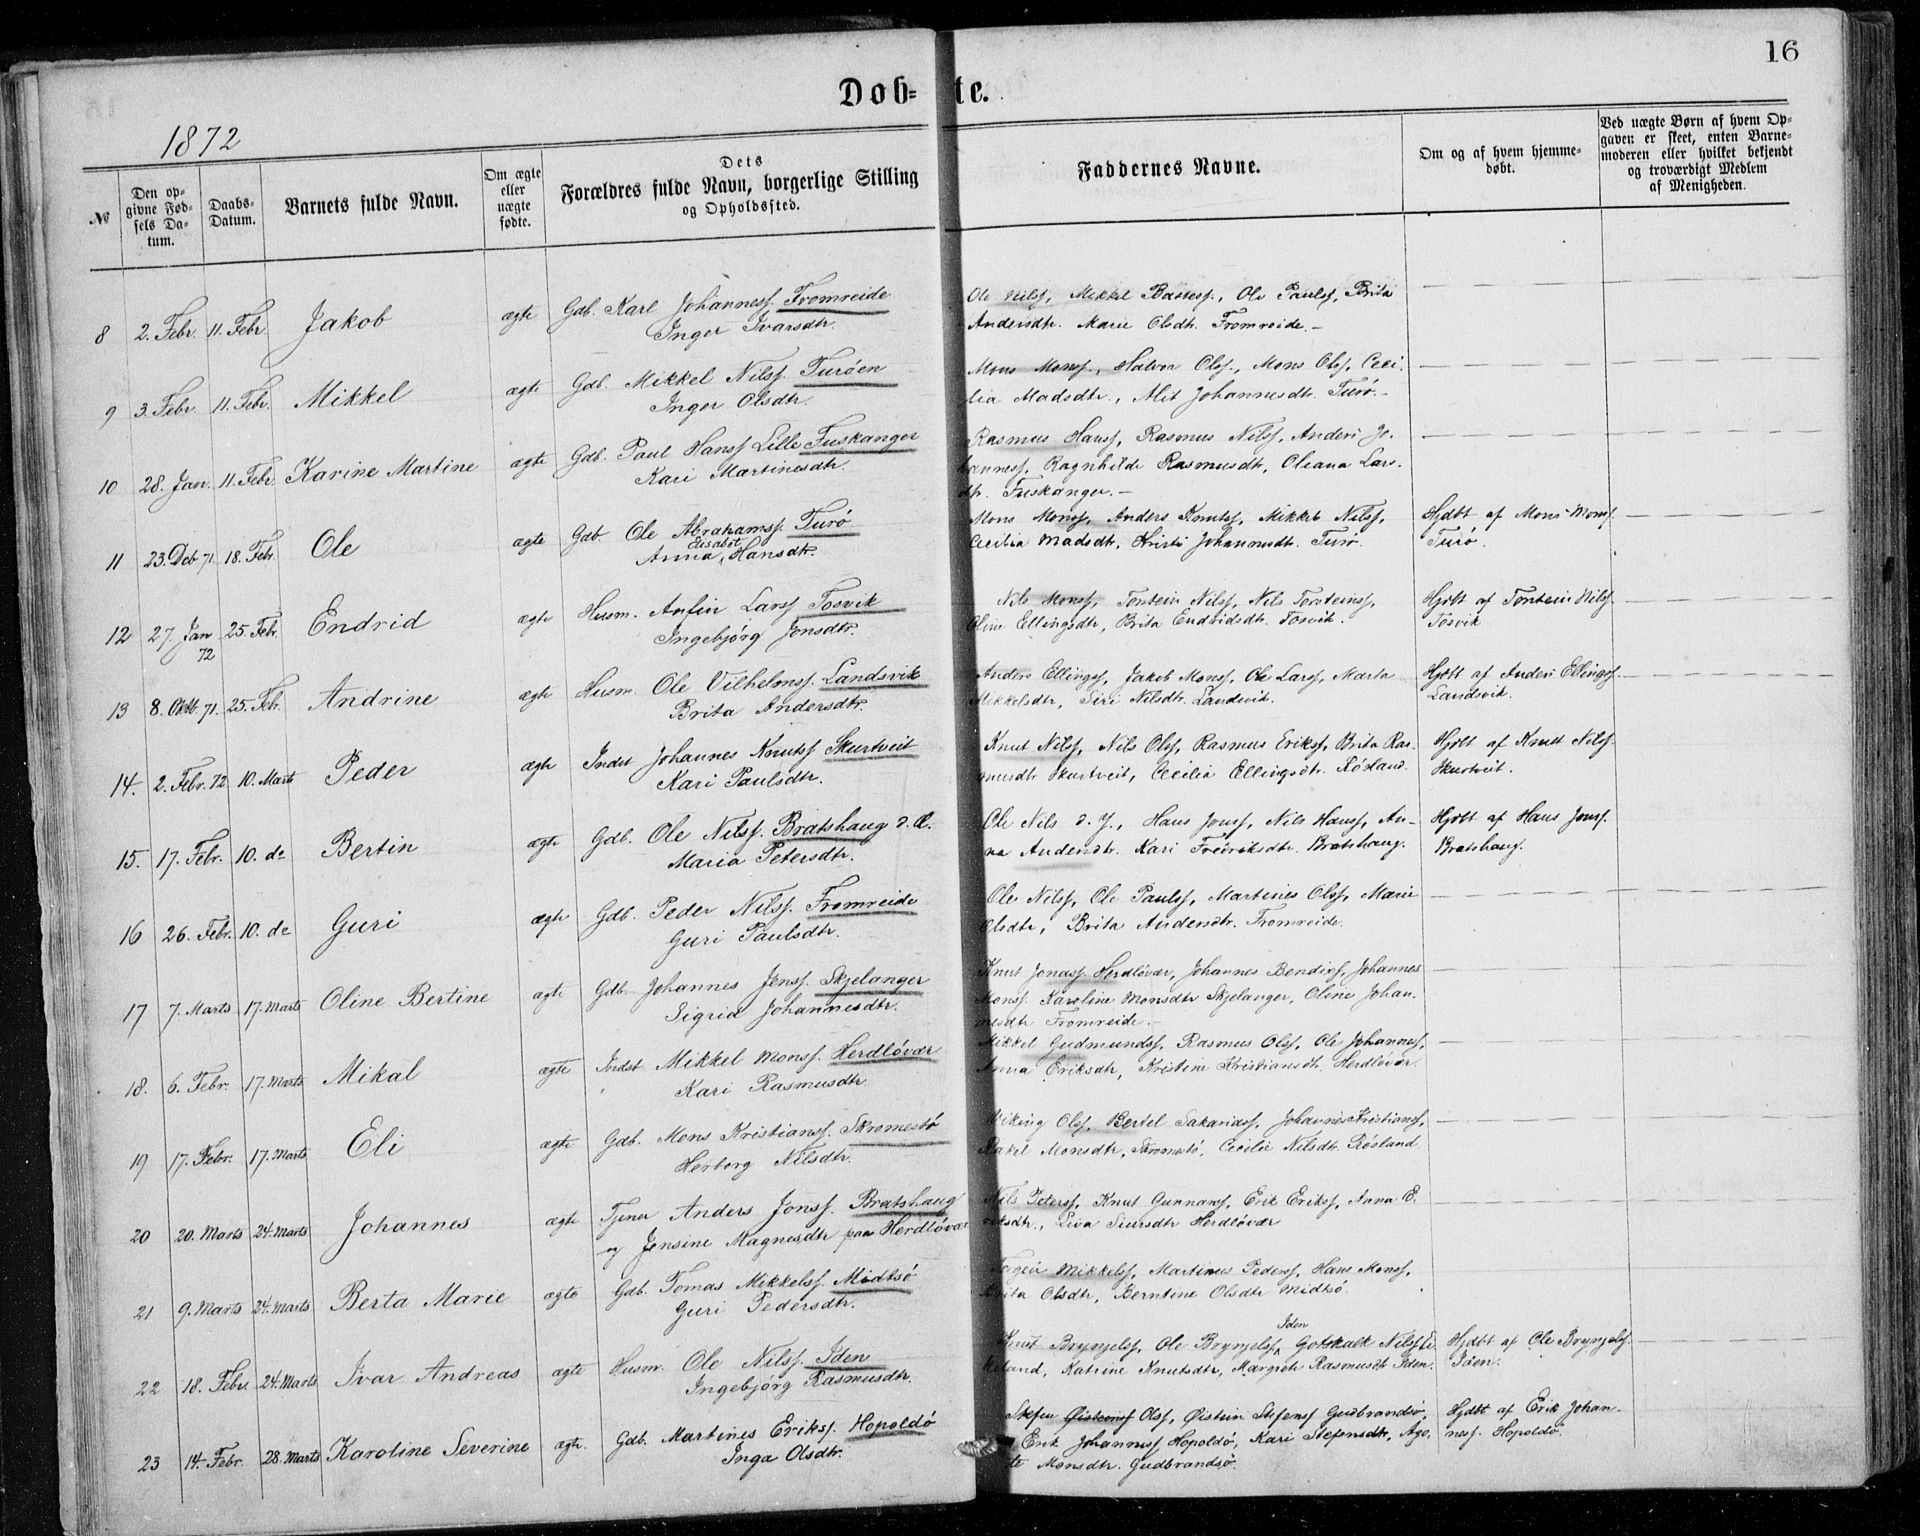 16
Døb=te.
1872
№
Den op-
givne Fød-
sels Da-
tum.
Daabs-
Datum.
Barnets fulde Navn.
Om ægte
eller
uægte
fødte.
Dets
Forældres fulde Navn, borgerlige Stilling
og Opholdssted.
Faddernes Navne.
Om og af hvem hjemme-
døbt.
Ved uægte Børn af hvem Op-
gaven er skeet, enten Barne-
moderen eller hvilket bekjendt
og troværdigt Medlem
af Menigheden.
8 2. Febr. 11. Febr Jakob ægte Gdb. Karl Johanness. Fromreide
Inger Ivarsdtr.
Ole Nilss, Mikkel Ole Paulss, Brita
Andersdtr. Marie Olsdtr. Fromreide.
9 3. Febr. 11. Febr. Mikkel ægte Gdb. Mikkel Nilss. Turøen
Inger Olsdtr.
Mons Monss., Halvor Olss., Mons Olss, Ceci-
lia Madsdtr., Alit Johannesdtr. Turø.-
10 28. Jan. 11. Febr Karine Martine ægte Gdb. Paul Hanss Lille Fuskanger
Kari Martinesdtr.
Rasmus Hanss, Rasmus Nilss, Anders Jo-
hanness, Ragnhilde Rasmusdtr, Oleana Lars-
dtr. Fuskanger.-
11 23. Deb 71. 18. Febr. Ole ægte Gdb Ole Abrahamss. Turø
Anna Elisabet Hansdtr.
Mons Monss, Anders Knutss, Mikkel Nilss,
Cecilia Madsdtr, Kristi Johannesdtr. Turø.
Hjdbt af Mons Monss
Turø.
12 27. Jan 72 25. Febr. Endrid ægte Husm. Anfin Larss Tosvik
Ingebjørg Jonsdtr.
Nils Monss, Torstein Nilss, Nils Torsteinss,
Oline Ellingsdtr, Brita Endridsdtr. Tosvik.
Hjdbt af Torstein Nilss
Tosvik
13 8. Oktb. 71. 25. Febr. Andrine ægte Husm. Ole Vilhelmss. Landsvik
Brita Andersdtr.
Anders Ellingss, Jakob Monss, Ole Larss, Marta
Mikkelsdtr, Siri Nilsdtr. Landsvik.
Hjdbt af Anders Ellingss.
Landsvik.
14. 2. Febr. 72 10. Marts Peder ægte Indst Johannes Knutss Skurtveit
Kari Paulsdtr.
Knut Nilss, Nils Olss, Rasmus Erikss, Brita Ras-
musdtr Skurtveit, Cecilia Ellingsdtr. Røsland.
Hjdbt af Knut Nilss.
Skurtveit.
15. 17. Febr. 10. do Bertin ægte Gdb. Ole Nilss. Bratshaug d. Æ.
Maria Petersdtr.
Ole Nils d. Y., Hans Jonss, Nils Hanss, An-
na Andersdtr. Kari Fredriksdtr. Bratshaug.
Hjdbt af Hans Jonss.
Bratshaug.
16 26. Febr. 10. do Guri ægte Gdb. Peder Nilss. Fromreide
Guri Paulsdtr.
Ole Nilss, Ole Paulss, Martines Olss, Marie
Olsdtr, Brita Andersdtr. Fromreide.
17 7. Marts 17. Marts Oline Bertine ægte Gdb. Johannes Jenss. Skjelanger
Sigrid Johannesdtr.
Knut Jonass Herdløvær, Johannes Bendixs, Johannes
Monss. Karoline Monsdtr Skjelanger, Oline Johan-
nesdtr Fromreide.-
18. 6. Febr. 17. Marts Mikal ægte Indst Mikkel Monss. Herdløvær
Kari Rasmusdtr.
Mikkel Gudmundss, Rasmus Olss, Ole Johanness,
Anna Eriksdtr, Kristine Kristiansdtr. Herdløvær.
19 17. Febr. 17. Marts Eli ægte Gdb. Mons Kristianss. Skromestø
Herborg Nilsdtr.
Viking Olss, Bertel Sakariass, Johannes Kristianss,
Rakel Monsdtr, Skromestø, Cecilie Nilsdtr. Røsland.
20 20. Marts 24. Marts Johannes ægte Tjener Anders Jonss. Bratshaug
og Jensine Magnesdtr paa Herdløvær
Nils Peterss, Knut Gunnarss, Erik Erikss, Anna E-
riksdtr., Siva Siursdtr Herdløvær
21 9. Marts 24. Marts Berta Marie ægte Gdb. Tomas Mikkelss. Midtsø
Guri Pedersdtr.
Torgeir Mikkelss, Martinus Pederss, Hans Monss,
Brita Olsdtr, Berntine Olsdtr Midtsø.
22 18. Febr. 24. Marts Ivar Andreas ægte Husm. Ole Nilss. Iden
Ingebjørg Rasmusdtr.
Knut Brynjelss, Ole Brynjelss Iden Gotskalk Nilss
Katrine Knutsdtr, Margrete Rasmusdt Iden.
Hjdbt af Ole Brynjelss.
Iden.
23 14. Febr. 28. Marts Karoline Severine ægte. Gdb. Martines Erikss. Hopoldø
Inga Olsdtr.
Stefen Øisteinss Olss, Øistein Stefenss Gudbrandsø,
Erik Johanness Hopoldø, Kari Stefensdtr, Ago-
te Monsdtr. Gudbrandsø.
Hjdbt af Erik Johan-
ness. Hopoldø.